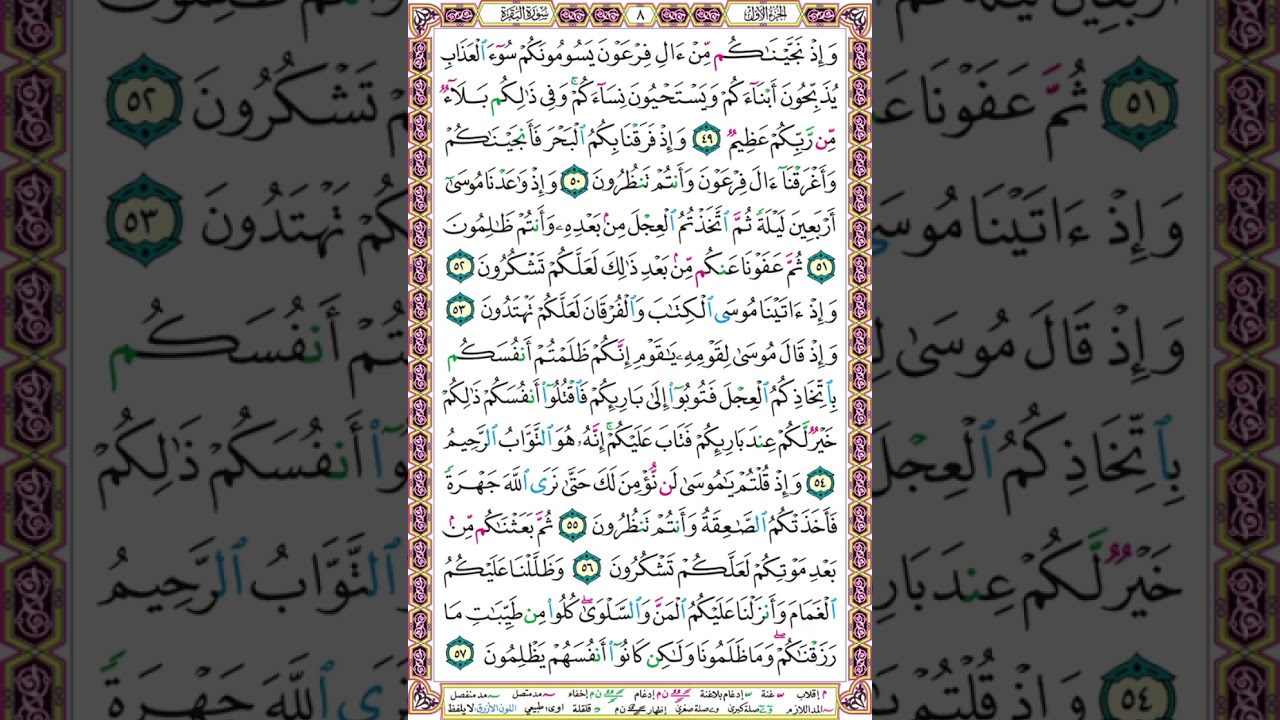 الجزء الأول
٨
سورة البقرة
وَإِذْ نَجَّيْنَٰكُم مِّنْ ءَالِ فِرْعَوْنَ يَسُومُونَكُمْ سُوٓءَ ٱلْعَذَابِ
يُذَبِّحُونَ أَبْنَآءَكُمْ وَيَسْتَحْيُونَ نِسَآءَكُمْ ۚ وَفِى ذَٰلِكُم بَلَآءٌ
مِّن رَّبِّكُمْ عَظِيمٌ ٤٩ وَإِذْ فَرَقْنَا بِكُمُ ٱلْبَحْرَ فَأَنجَيْنَٰكُمْ
وَأَغْرَقْنَآ ءَالَ فِرْعَوْنَ وَأَنتُمْ تَنظُرُونَ ٥٠ وَإِذْ وَٰعَدْنَا مُوسَىٰٓ
أَرْبَعِينَ لَيْلَةً ثُمَّ ٱتَّخَذْتُمُ ٱلْعِجْلَ مِنۢ بَعْدِهِۦ وَأَنتُمْ ظَٰلِمُونَ
٥١ ثُمَّ عَفَوْنَا عَنكُم مِّنۢ بَعْدِ ذَٰلِكَ لَعَلَّكُمْ تَشْكُرُونَ ٥٢
وَإِذْ ءَاتَيْنَا مُوسَى ٱلْكِتَٰبَ وَٱلْفُرْقَانَ لَعَلَّكُمْ تَهْتَدُونَ ٥٣
وَإِذْ قَالَ مُوسَىٰ لِقَوْمِهِۦ يَٰقَوْمِ إِنَّكُمْ ظَلَمْتُمْ أَنفُسَكُم
بِٱتِّخَاذِكُمُ ٱلْعِجْلَ فَتُوبُوٓا۟ إِلَىٰ بَارِئِكُمْ فَٱقْتُلُوٓا۟ أَنفُسَكُمْ ذَٰلِكُمْ
خَيْرٌ لَّكُمْ عِندَ بَارِئِكُمْ فَتَابَ عَلَيْكُمْ ۚ إِنَّهُۥ هُوَ ٱلتَّوَّابُ ٱلرَّحِيمُ
٥٤ وَإِذْ قُلْتُمْ يَٰمُوسَىٰ لَن نُّؤْمِنَ لَكَ حَتَّىٰ نَرَى ٱللَّهَ جَهْرَةً
فَأَخَذَتْكُمُ ٱلصَّٰعِقَةُ وَأَنتُمْ تَنظُرُونَ ٥٥ ثُمَّ بَعَثْنَٰكُم مِّنۢ
بَعْدِ مَوْتِكُمْ لَعَلَّكُمْ تَشْكُرُونَ ٥٦ وَظَلَّلْنَا عَلَيْكُمُ
ٱلْغَمَامَ وَأَنزَلْنَا عَلَيْكُمُ ٱلْمَنَّ وَٱلسَّلْوَىٰ ۖ كُلُوا۟ مِن طَيِّبَٰتِ مَا
رَزَقْنَٰكُمْ ۖ وَمَا ظَلَمُونَا وَلَٰكِن كَانُوٓا۟ أَنفُسَهُمْ يَظْلِمُونَ ٥٧
م إقلاب غنة إدغام بلاغنة ن م إدغام ن م إخفاء مد متصل مد منفصل
المد اللازم صلة كبرى صلة صغرى إظهار ن م قلقلة اوى طبيعي اللون الأزرق لا يلفظ